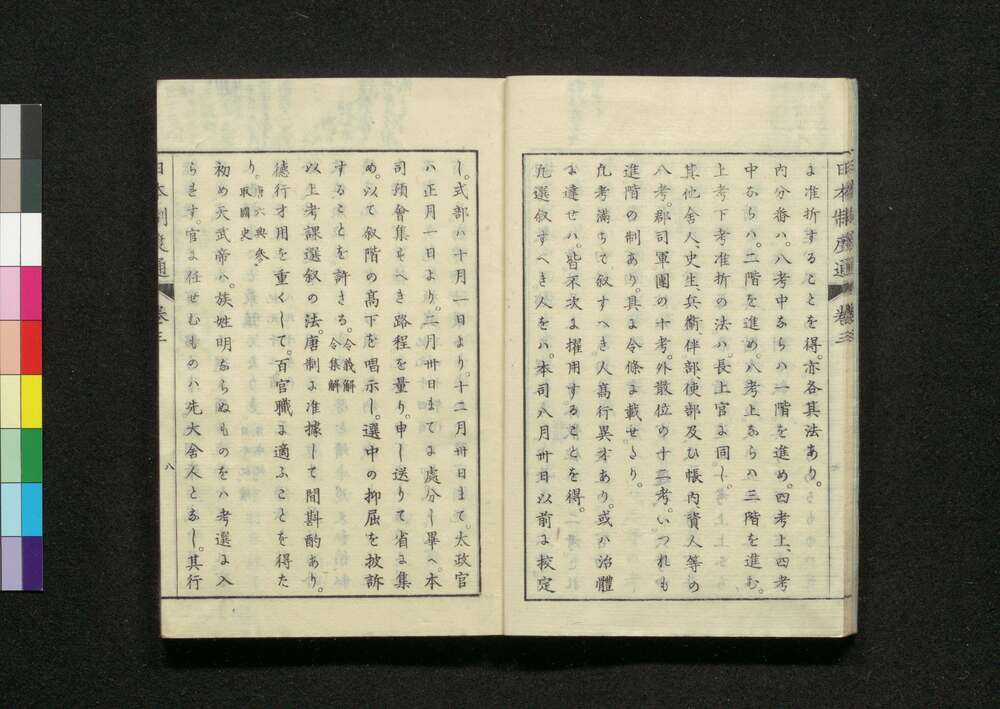 日本制度通 卷三
ま准折することを得。亦各其法あり。
内分番ハ。八考中ならハ一階を進め。四考上、四考
中ならハ。二階を進め。八考上ならハ三階を進む。
上考下考准折の法ハ。長上官ま同し。
其他舍人、史生、兵衞、伴部使部及ひ帳内、資人等の
八考。郡司軍團の十考。外散位の十二考。いつれも
進階の制あり。具ま令條ま載せたり。
凡考滿ちて叙すへき人高行異才あり。或ハ治體
ま達せハ。皆不次ま擢用することを得。
凡選叙すへき人をハ。本司八月卅日以前ま挍定
し。式部ハ十月一日より。十二月卅日まて。太政官
ハ正月一日より。二月卅日まてま處分し畢へ。本
司預會集すへき路程を量り。申し送りて省ま集
め。以て叙階の高下を唱示し。選中の抑屈を披訴
することを許さる。令義解 令集解
以上考課選叙の法。唐制ま准據して間斟酌あり。
德行才用を重くして。百官職ま適ふことを得た
り。唐六典參 取國史
初め天武帝ハ。族姓明ならぬものをハ考選ま入
らせす。官ま任せむものハ先大舍人となし。其行
日本制度通 卷三
八